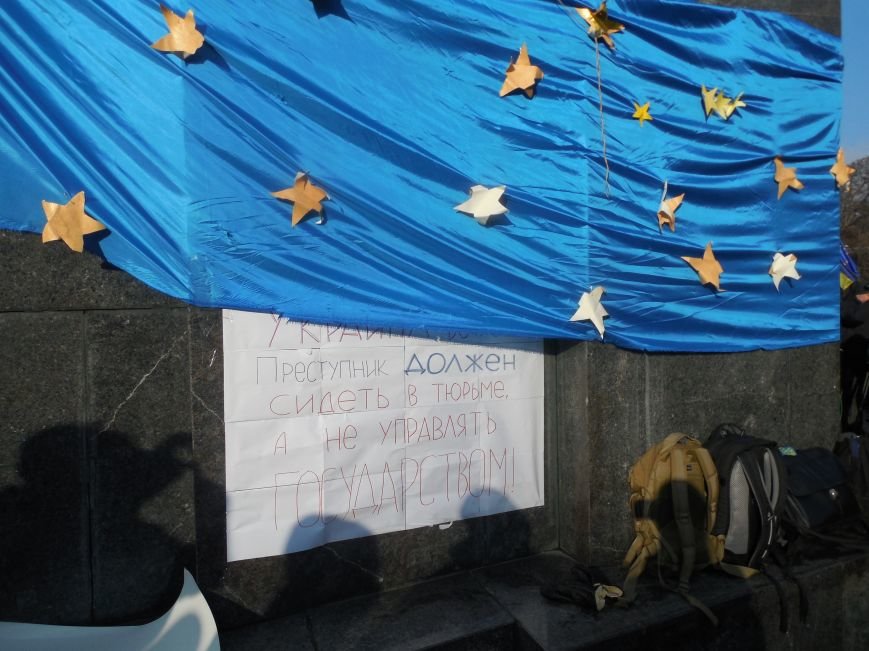 Преступник ДОЛЖЕН
СИДЕТЬ В ТЮРЬМЕ,
А НЕ УПРАВЛЯТЬ
ГОСУДАРСТВОМ!